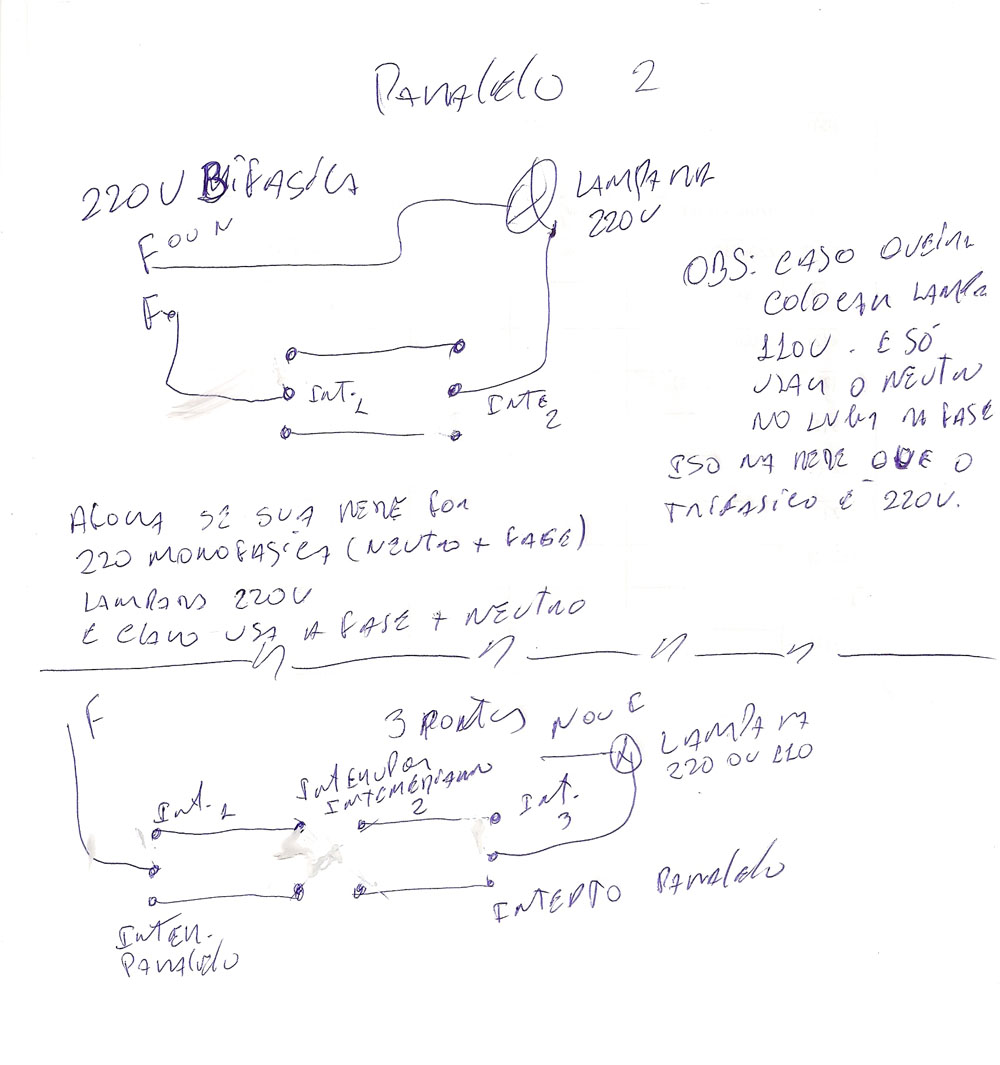 PARALELO 2
220V BIFASICA
LAMPADA
220V
F OU N
F
INT. 1
INTE
2
OBS: CASO QUEIRA
COLOCAR LAMPA
110V. E SÓ
USAR O NEUTRO
NO LUGAR DA FASE
ISO NA REDE QUE O
TRIFASICO É 220V.
AGORA SE SUA REDE FOR
220 MONOFASICA (NEUTRO + FASE)
LAMPADA 220V
E CLARO USA A FASE + NEUTRO
F
3 PONTOS
N OU F
LAMPADA
220 OU 110
INT. 1
INTERUPOR
INTERMEDIARIO
2
INT.
3
INTER.
PARALELO
PARALELO